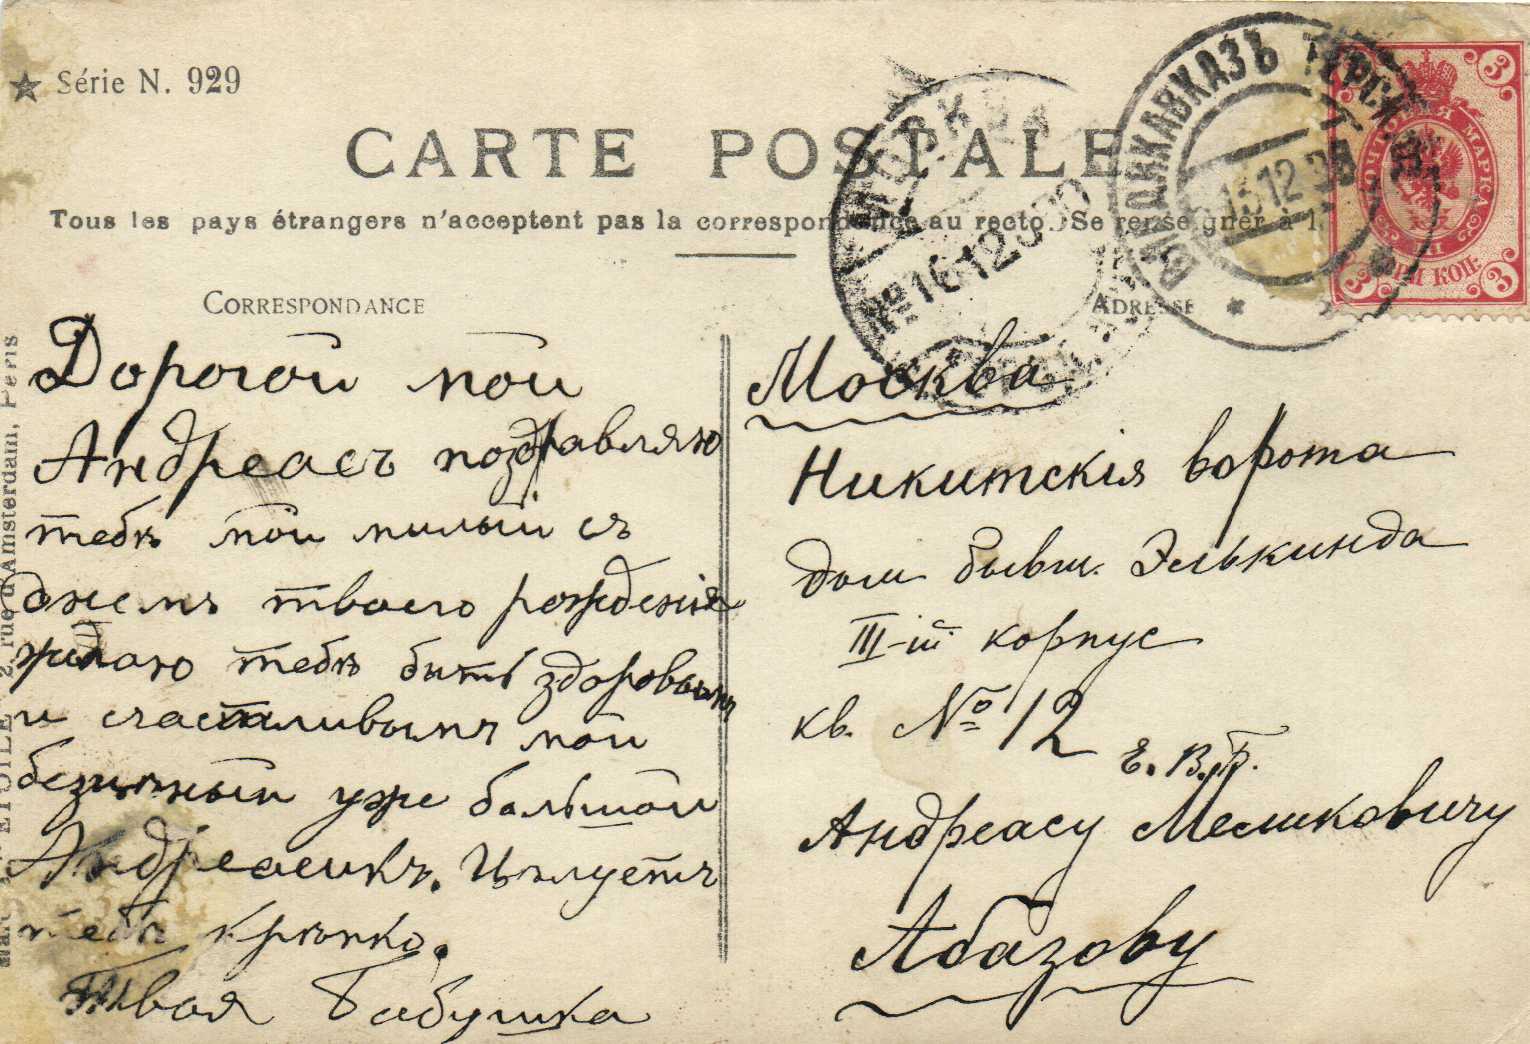 ★ Série N. 929
CARTE POSTALE
Tous les pays étrangers n'acceptent pas la correspondance au recto. Se renseigner à l
CORRESPONDANCE
Дорогой мой
Андреасъ поздравляю
тебѣ мой милый съ
днемъ твоего рожденія
желаю тебѣ быть здоровымъ
и счастливымъ мой
уже большой
Андреасикъ. Цѣлуетъ
тебя крѣпко.
Твоя Бабушка
ADRESSE
Москва
Никитскія ворота
домъ бывш. Элькинда
III-ій корпус
кв. № 12
Е. В. Б.
Андреасу Меликовичу
Абазову
МОСКВА
16 12
ВЛАДИКАВКАЗЪ ТЕРСК.
12
ПОЧТОВАЯ МАРКА
ТРИ КОП.
3
3
3
3
ETOILE 2, rue d'Amsterdam, Paris